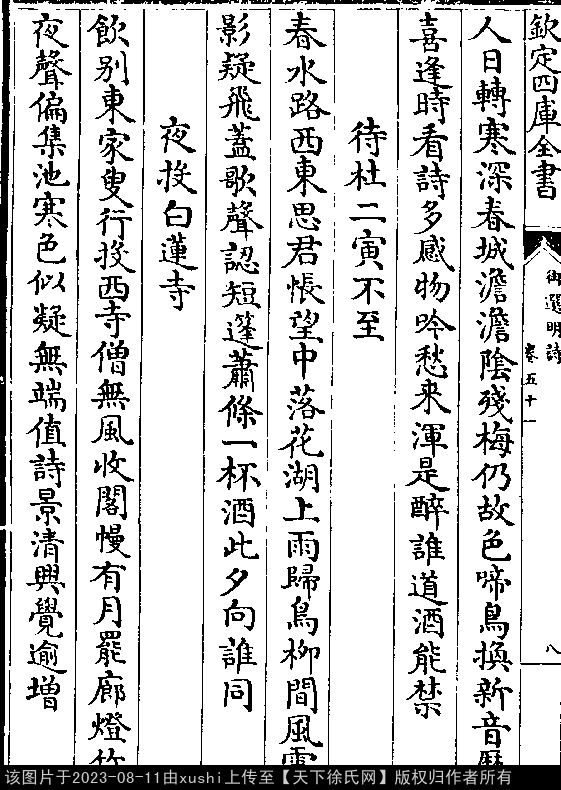 欽定四庫全書
御選明詩
卷五十一
八
人日轉寒深春城澹澹陰殘梅仍故色啼鳥換新音
喜逢時看詩多感物吟愁来渾是醉誰道酒能禁
待杜二寅不至
春水路西東思君悵望中落花湖上雨歸鳥柳間風
影疑飛蓋歌聲認短篷蕭條一杯酒此夕向誰同
夜投白蓮寺
飲别東家叟行投西寺僧無風收閣幔有月罷廊燈
夜聲偏集池寒色似凝無端值詩景清興覺逾增
该图片于2023-08-11由xushi上传至【天下徐氏网】版权归作者所有